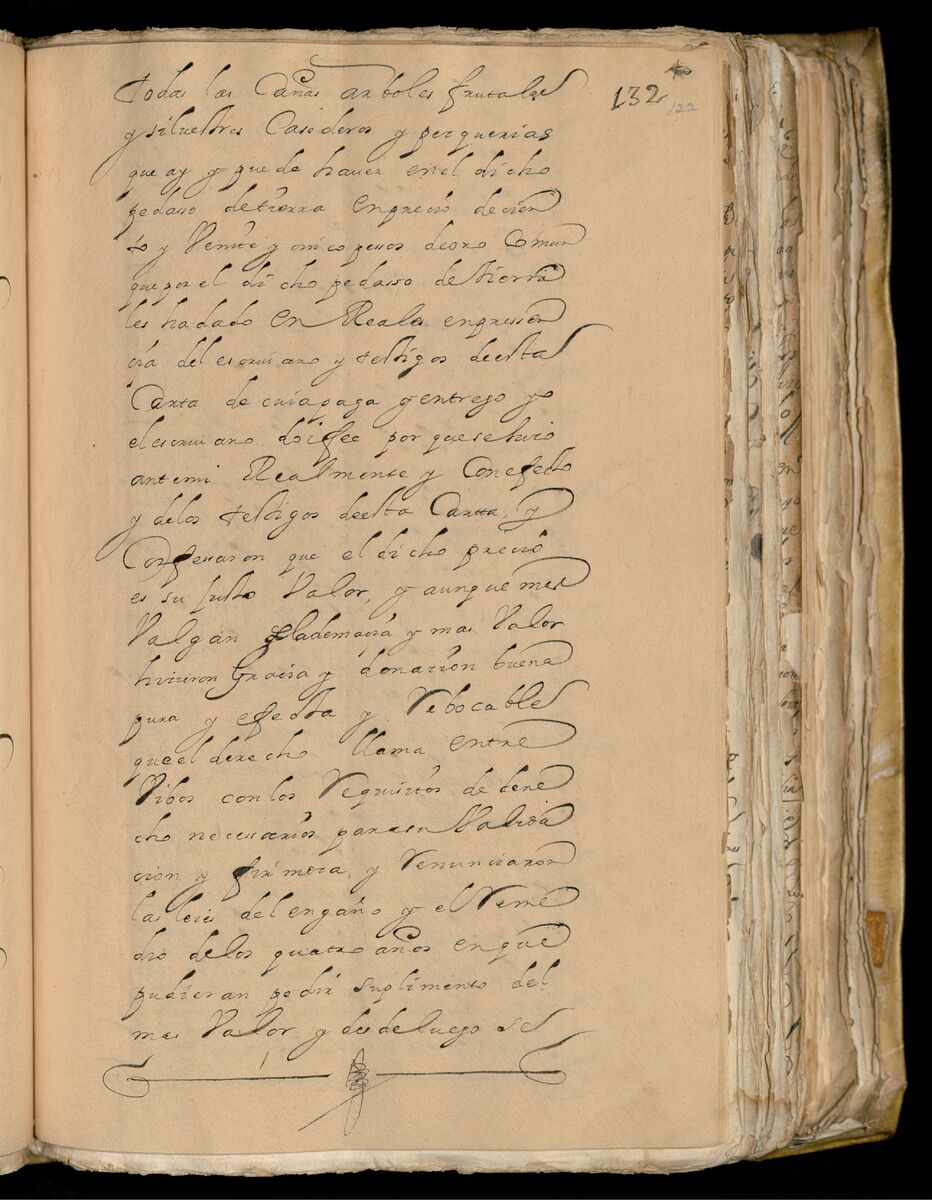 todas las Cañas arboles frutales
y siluestres Casederos y pesquerias
que ay y puede hauer en el dicho
pedaso de tierra en precio de cien
to y Veinte y cinco pesos de oro Comun
que por el dicho pedasso de tierra
les ha dado en Reales en pressen
cia del escriuano y testigos de esta
Carta de cuia paga y entrego yo
el escriuano doi fee por que se hiço
ante mi Realmente y Con efecto
y de los testigos de esta Carta, y
Confesaron que el dicho precio
es su justo Valor, y aunque mas
Valgan de la demacia y mas Valor
hicieron Gracia y donacion buena
pura y efecta y Rebocable
que el derecho llama entre
Vibos con los Requisitos de dere
cho necessarios para su Valida
cion y firmeca, y Renunciaron
las leies del engaño y el Reme
dio de los quatro años en que
pudieran pedir suplimento del
mas Valor y desde luego se
132
122